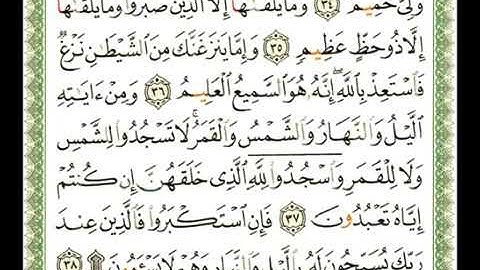 وَلِىٌّ حَمِيمٌ ٣٤ وَمَا يُلَقَّىٰهَآ إِلَّا ٱلَّذِينَ صَبَرُوا۟ وَمَا يُلَقَّىٰهَآ
إِلَّا ذُو حَظٍّ عَظِيمٍ ٣٥ وَإِمَّا يَنزَغَنَّكَ مِنَ ٱلشَّيْطَٰنِ نَزْغٌ
فَٱسْتَعِذْ بِٱللَّهِ إِنَّهُۥ هُوَ ٱلسَّمِيعُ ٱلْعَلِيمُ ٣٦ وَمِنْ ءَايَٰتِهِ
ٱلَّيْلُ وَٱلنَّهَارُ وَٱلشَّمْسُ وَٱلْقَمَرُ لَا تَسْجُدُوا۟ لِلشَّمْسِ
وَلَا لِلْقَمَرِ وَٱسْجُدُوا۟ لِلَّهِ ٱلَّذِى خَلَقَهُنَّ إِن كُنتُمْ
إِيَّاهُ تَعْبُدُونَ ٣٧ فَإِنِ ٱسْتَكْبَرُوا۟ فَٱلَّذِينَ عِندَ
رَبِّكَ يُسَبِّحُونَ لَهُۥ بِٱلَّيْلِ وَٱلنَّهَارِ وَهُمْ لَا يَسْـَٔمُونَ ۩ ٣٨